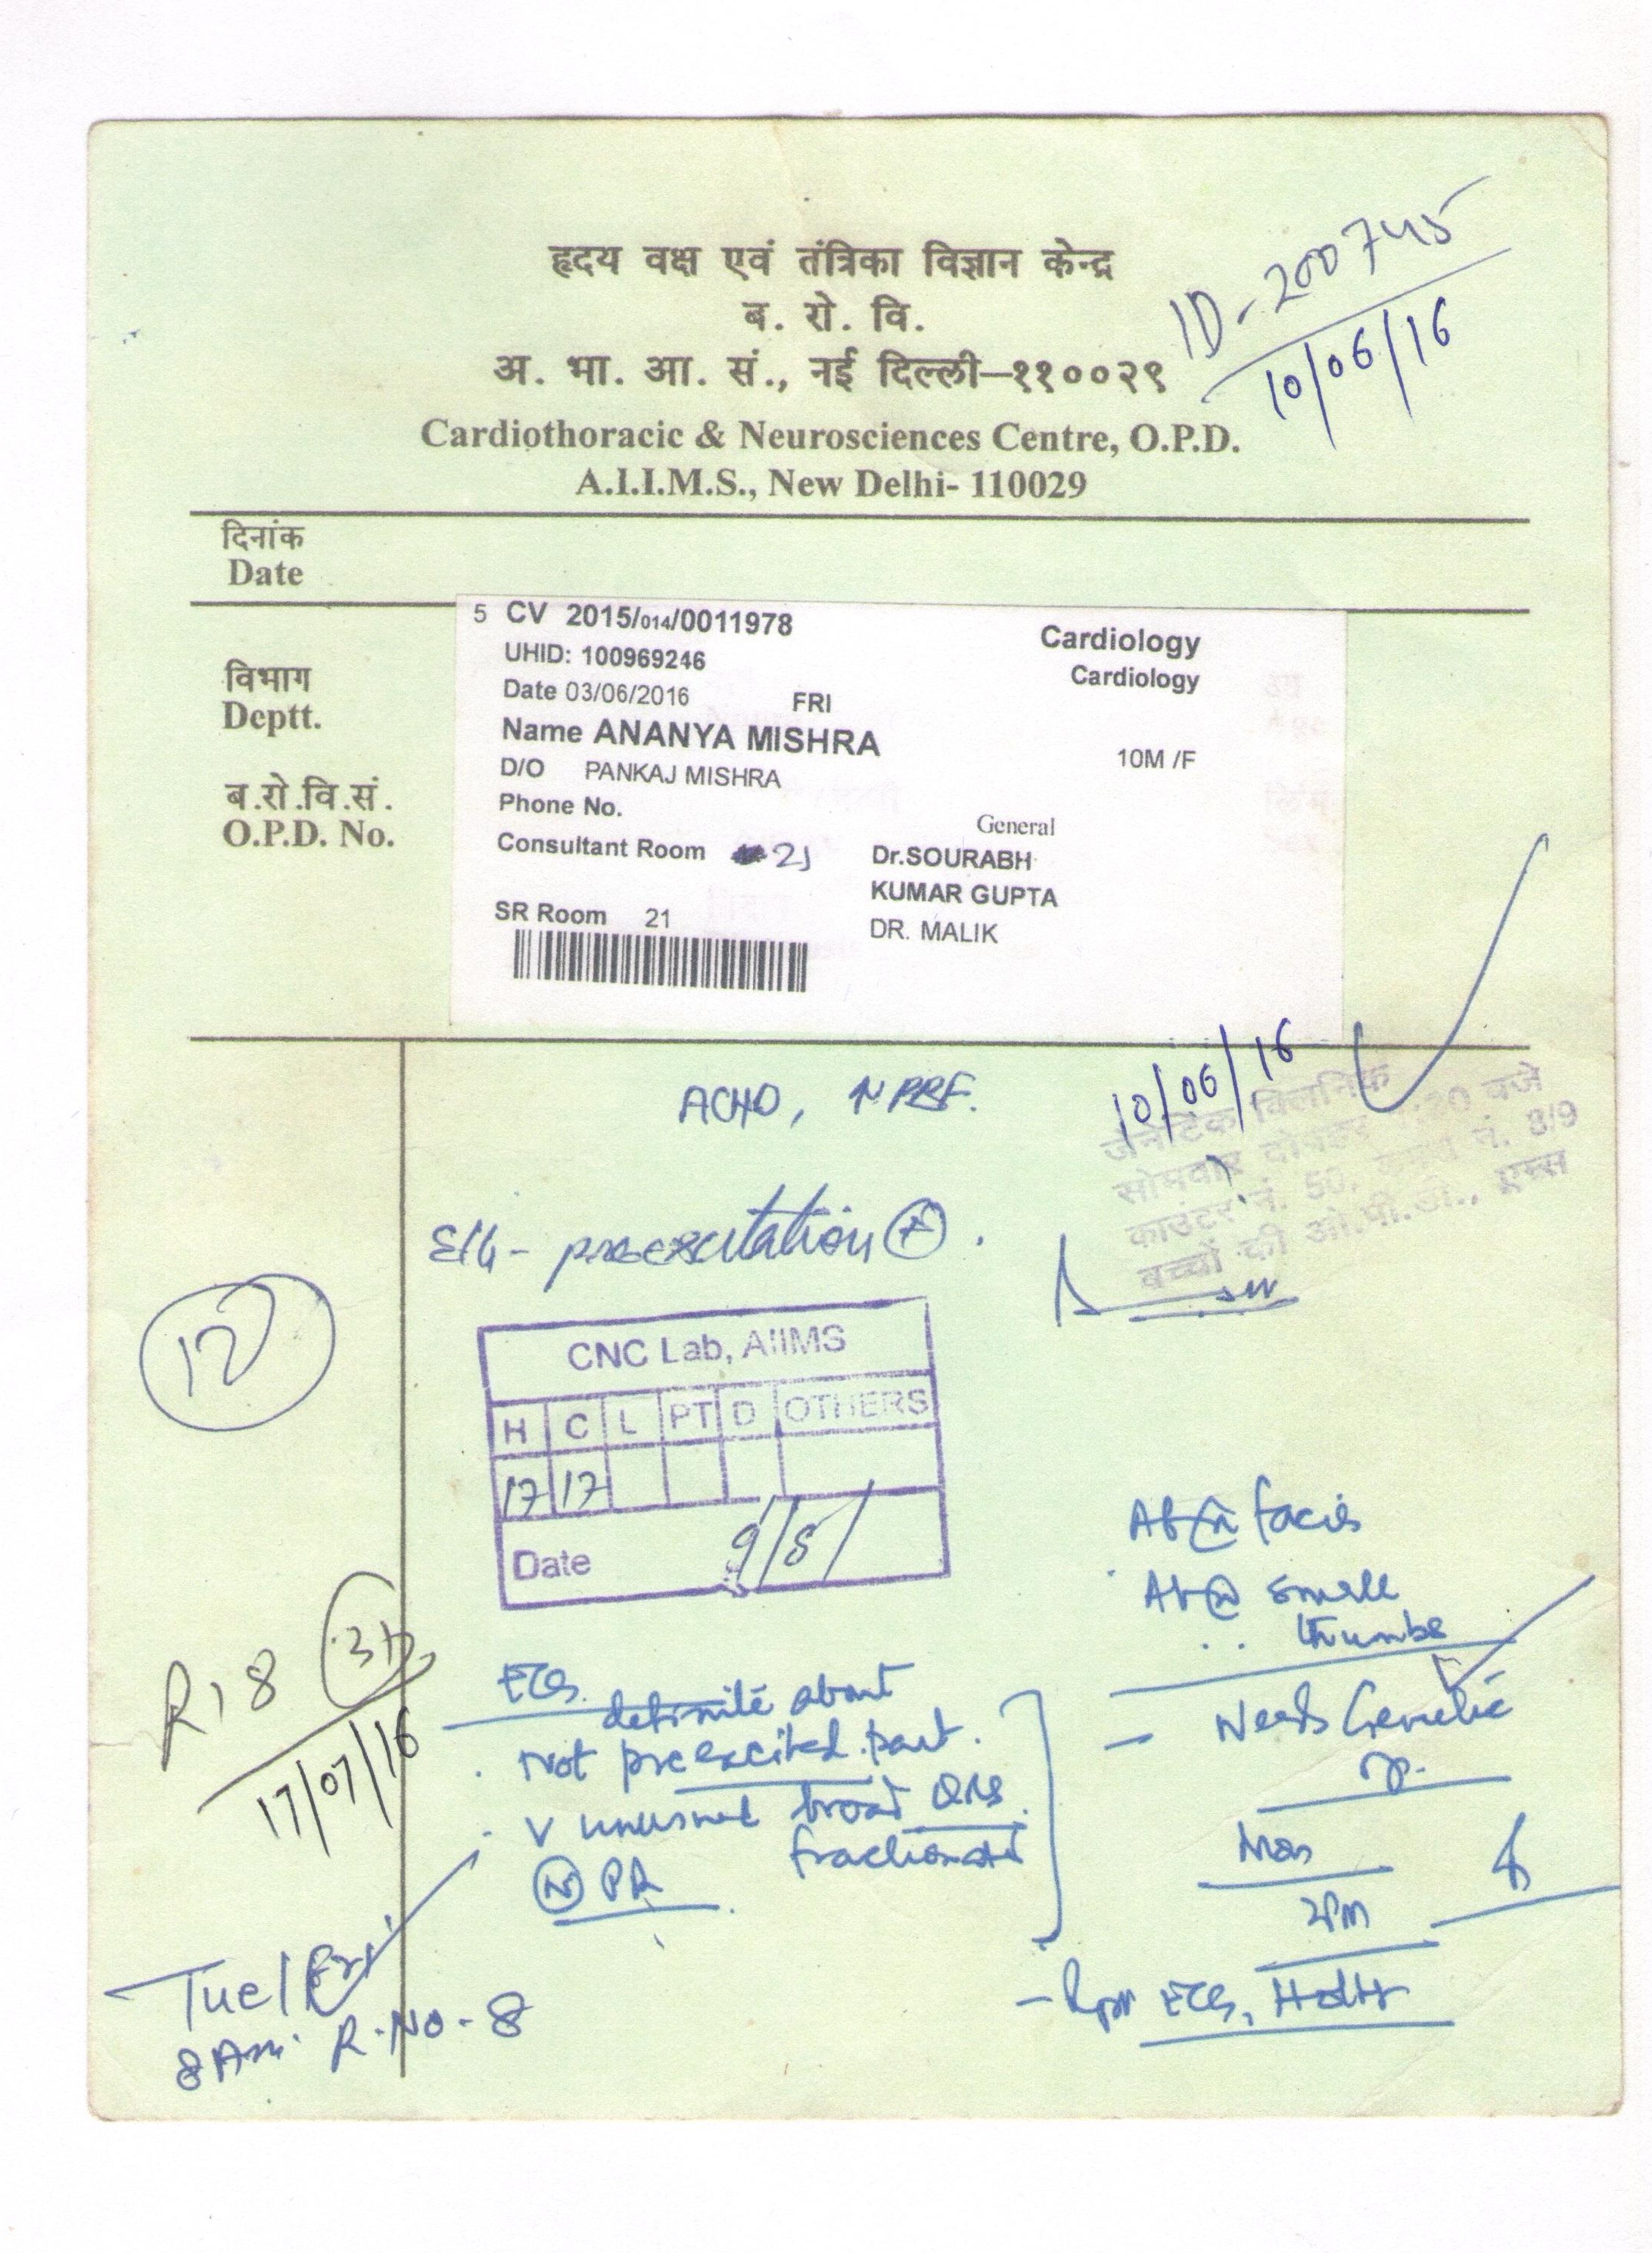 हृदय वक्ष एवं तंत्रिका विज्ञान केन्द्र
ब. रो. वि.
अ. भा. आ. सं., नई दिल्ली–११००२९
ID-200745
10/06/16
Cardiothoracic & Neurosciences Centre, O.P.D.
A.I.I.M.S., New Delhi- 110029
दिनांक
Date
विभाग
Deptt.
ब.रो.वि.सं.
O.P.D. No.
5 CV 2015/014/0011978
Cardiology
UHID: 100969246
Cardiology
Date 03/06/2016 FRI
Name ANANYA MISHRA
10M /F
D/O PANKAJ MISHRA
Phone No.
General
Consultant Room 21
Dr.SOURABH
KUMAR GUPTA
SR Room 21
DR. MALIK
10/06/16
ACHD,
जेनेटिक क्लिनिक
सोमवार दोपहर
काउंटर नं. 50, कमरा नं. 8/9
बच्चों की ओ.पी.डी., एम्स
preexcitation (+).
12
CNC Lab, AIIMS
H C L PT D OTHERS
17 17
Date 9/8/
facies
small
thumbs
R, 8
17/07/16
ECG
definite about
Not preexcited part.
V unusual broad QRS
fractionated
(N) PR
Needs Genetic
Mon
2PM
ECG, Holter
Tue/Fri
8Am R.No-8